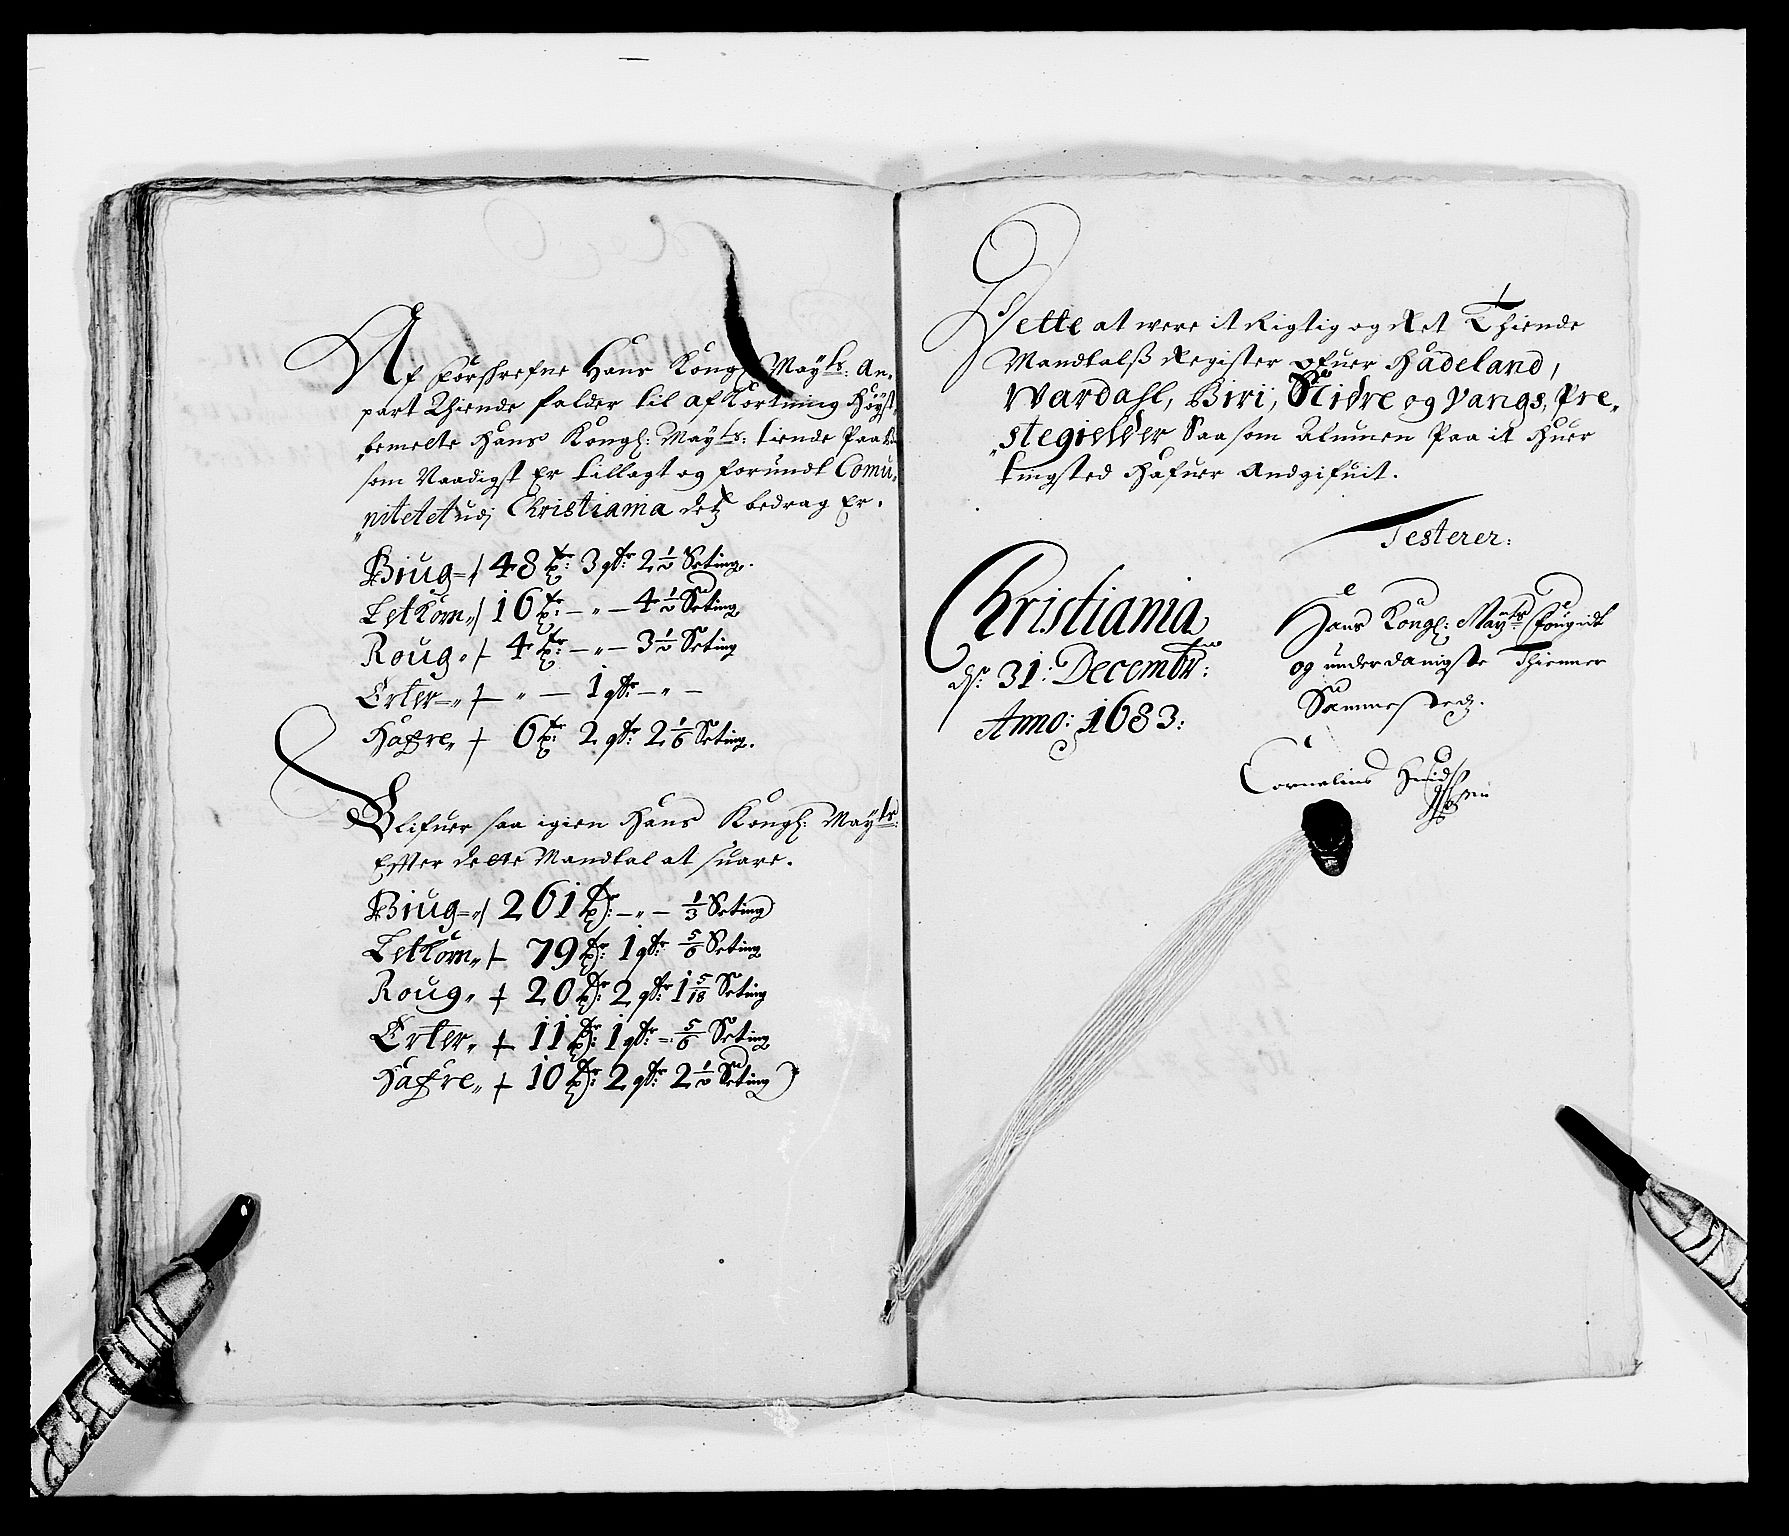 Af forschrefne Hans Kongl: Mayts: An„
part Thiende falder til afkortning Høyst„
„bemelte Hans Kongl: Mayts: tiende
som Naadigst er tillagt og forundt Comu„
„nitetet udj Christiania detz bedrag Er.
Biug =/ 48 tr: 3 qtr: 2 1/2 Seting.
Letkorn„/ 16 tr: — „ — 4 1/2 Seting
Roug „/ 4 tr: — „ — 3 1/2 Seting
Erter = „/ — „ — 1 qtr: — „ —
Hafre„ / 6 tr: 2 qtr: 2 1/6 Seting.
Blifuer saa igien Hans Kongl: Mayts:
Efter dette Mandtal at suare.
Biug = „/ 261 tr: — „ — 1/3 Seting
Letkorn„ / 79 tr: 1 qtr: 5/6 Seting
Roug „ / 20 tr: 2 qtr: 1 5/18 Seting
Erter„ / 11 tr: 1 qtr = 5/6 Seting
Hafre„ / 10 tr: 2 qtr: 2 1/2 Seting
Dette at were it Rigtig og Ret Thiende
Mandtalß Register ofuer Hadeland,
Wardahl, Biri, Slidre og Vangs, Pre„
„stegielder Saasom Almuen Paa it huer
tingsted Hafuer Andgifuit.
Testerer:
Christiania
ds: 31: Decembr:
Anno: 1683:
Hans Kongl: Mayts Fougidt
og underdanigste Thienner
Sammestedz.
Cornelius